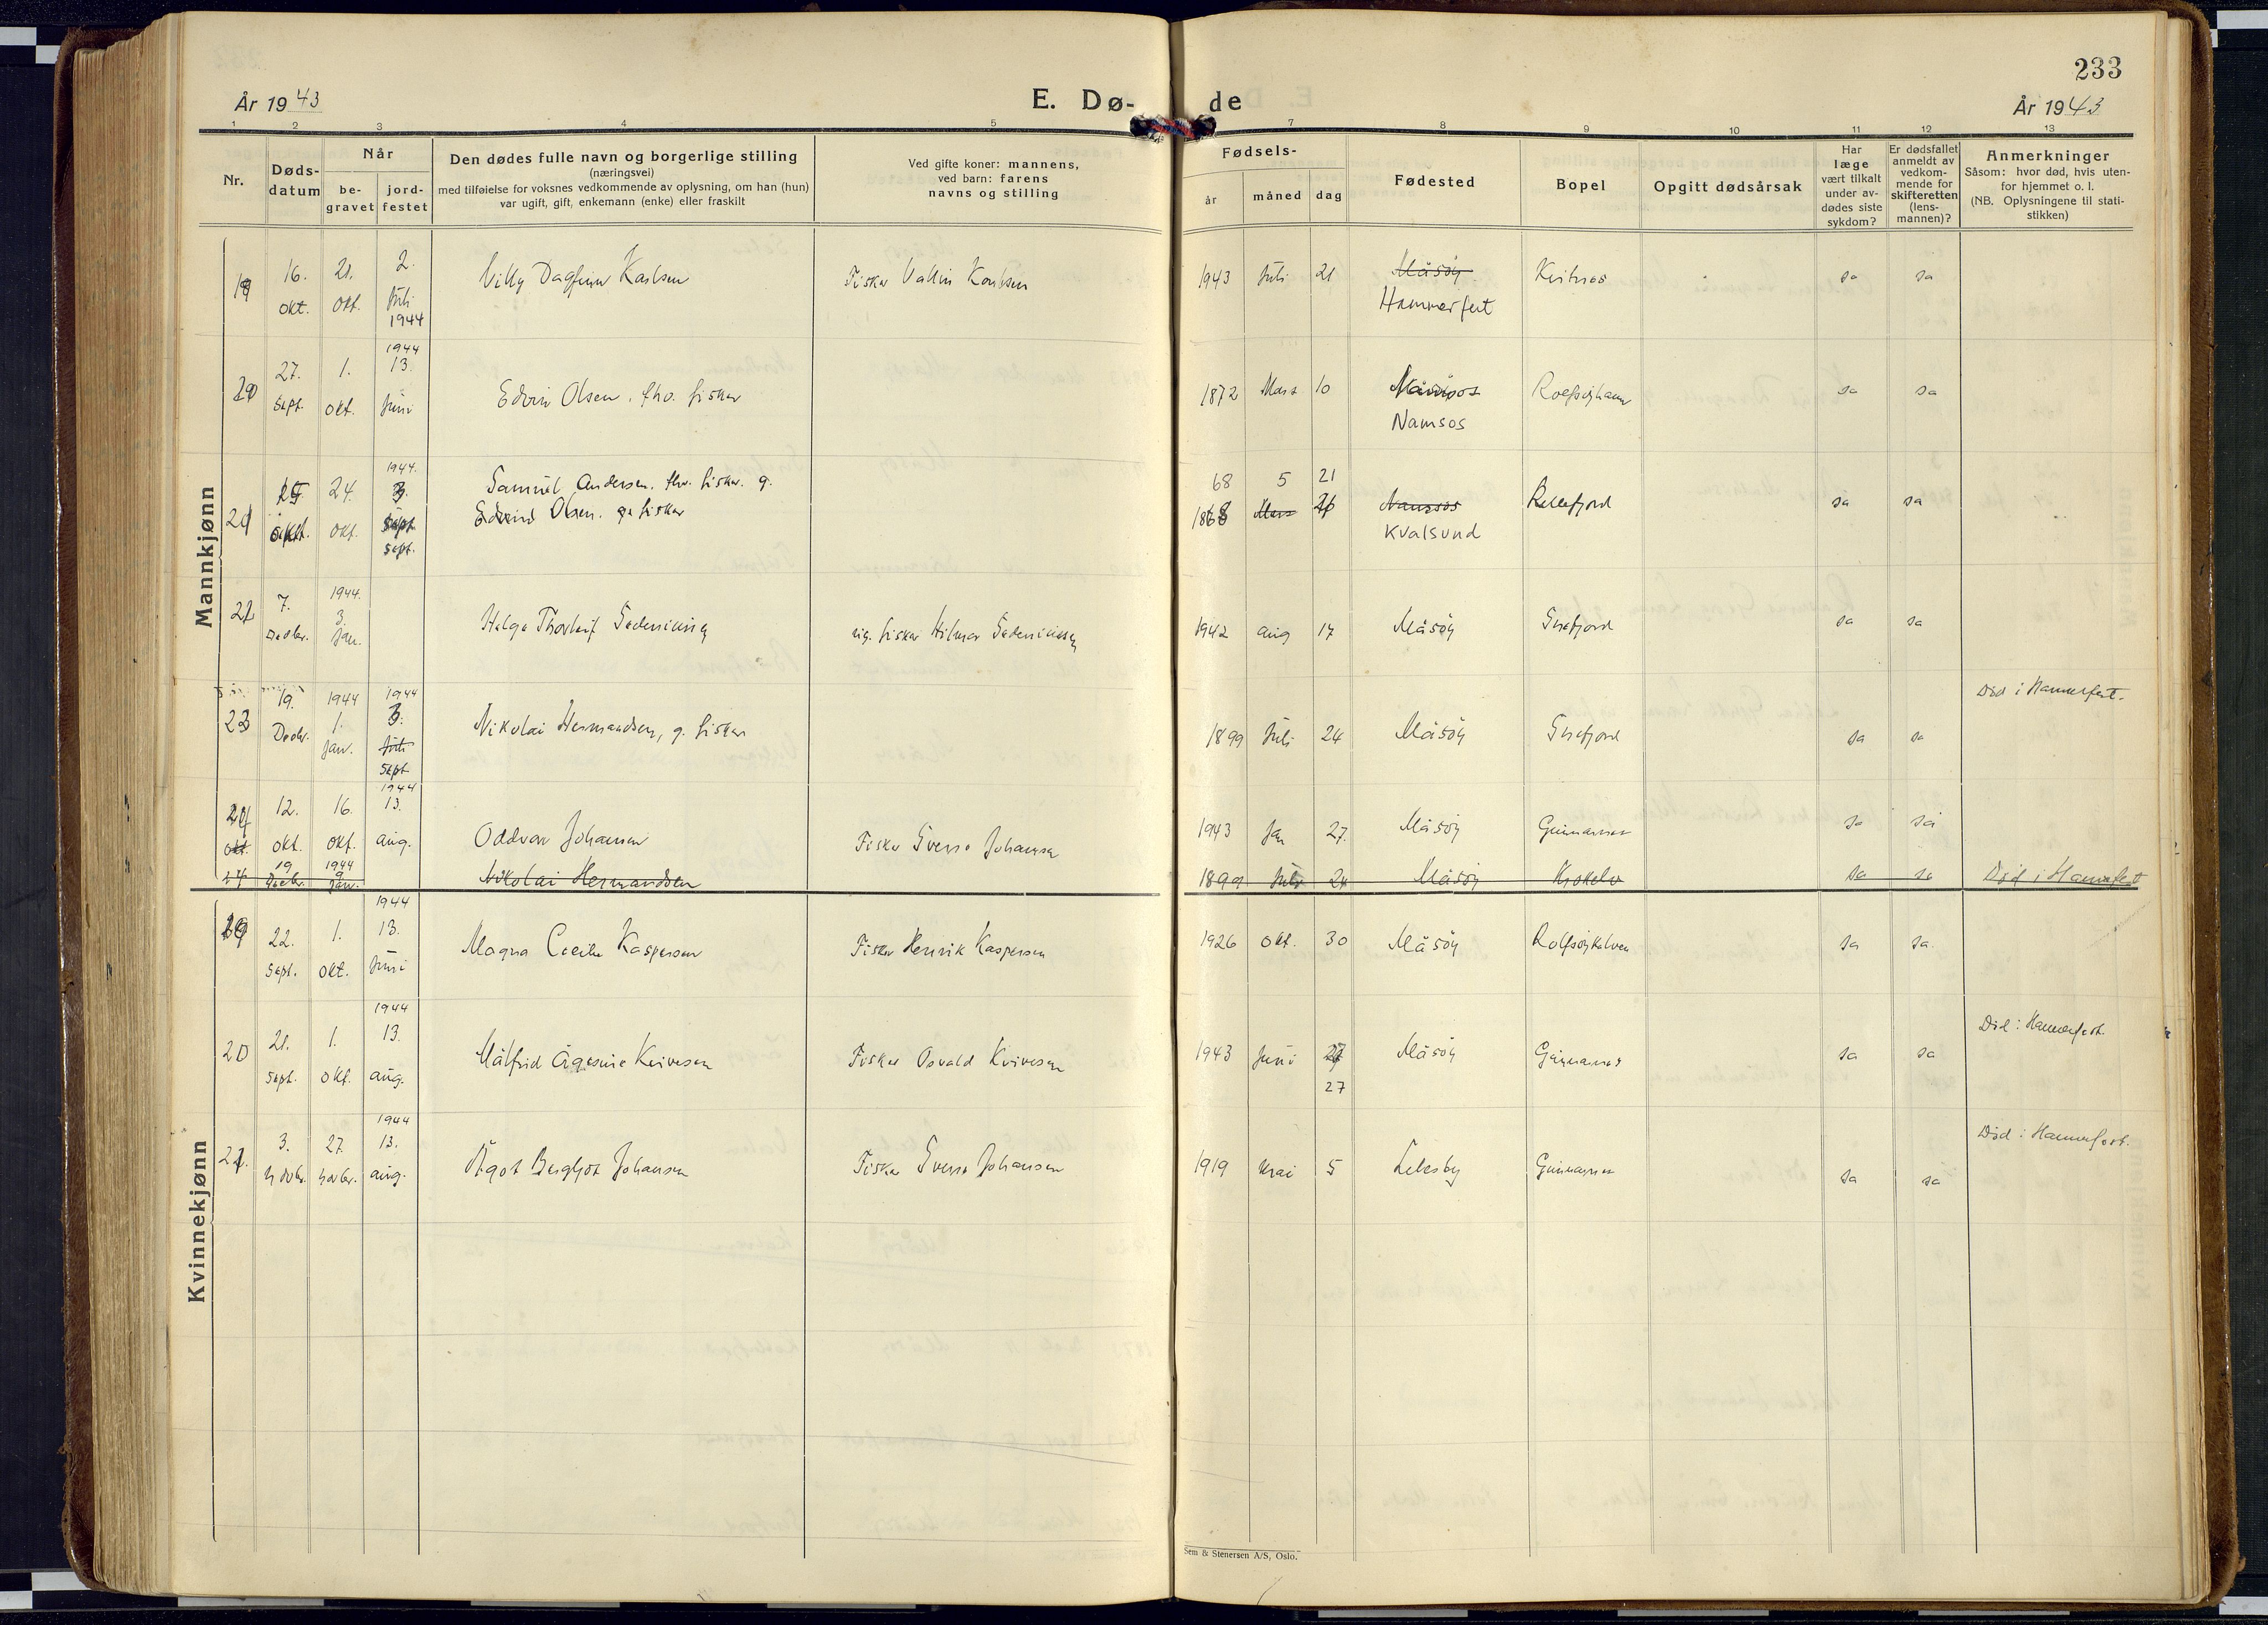 233
År 1943
E. Dø-
de
År 1943
1 2 3 4 5 7 8 9 10 11 12 13
Nr.
Døds-
datum
Når
be-
gravet
jord-
festet
Den dødes fulle navn og borgerlige stilling
(næringsvei)
med tilføielse for voksnes vedkommende av oplysning, om han (hun)
var ugift, gift, enkemann (enke) eller fraskilt
Ved gifte koner: mannens,
ved barn: farens
navns og stilling
Fødsels-
år
måned
dag
Fødested
Bopel
Opgitt dødsårsak
Har
læge
vært tilkalt
under av-
dødes siste
sykdom?
Er dødsfallet
anmeldt av
vedkom-
mende for
skifteretten
(lens-
mannen)?
Anmerkninger
Såsom: hvor død, hvis uten-
for hjemmet o. l.
(NB. Oplysningene til stati-
stikken)
Mannkjønn
19 16. okt. 21. okt. 2. Juli 1944 Villy Dagfinn Karlsen Fisker Karlsen 1943 Juli 21 Måsöy Hammerfest sa sa
20 27. Sept. 1. okt. 1944 13. Juni Edvin Olsen, fisker 1872 Mars 10 Namsos sa sa
21 24. okt. 1944. 3. Sept. Samuel Andersen. fisker. g.
Olsen. fisker
68 5 21
1868 Mars Namsos Kvalsund sa sa
22 7. Decbr. 1944. 3. Jan. Helge Thorleif fisker Hilmar 1942 aug 17 Måsöy Snefjord sa sa
23 19. Decbr. 1944 1. Jan. 1944 3. Juli Sept Nikolai Hermandsen, g. fisker 1899 Juli 24 Måsöy Snefjord sa sa Död i Hammerfest.
24 12. okt. 16. okt. 1944 13. aug. Oddvar Johansen Fisker Sverre Johansen 1943 Jan 27. Måsöy Gunnarnes sa sa
24 19 Decbr. 1944 9 Jan. Nikolai Hermandsen 1899 Juli 24 Måsöy Krokelv sa sa Död i Hammerfest
Kvinnekjønn
19 22. Sept. 1. okt. 1944 13. Juni Magna Cecilie Kaspersen Fisker Henrik Kaspersen 1926 okt. 30 Måsöy sa sa
20 21. Sept. 1. okt. 1944 13. aug. Målfrid Fisker Osvald 1943 Juni 27 Måsöy Gunnarnes sa sa Död i Hammerfest.
21. 3. Novbr. 27. novbr. 1944 13. aug. Ågot Bergljot Johansen Fisker Sverre Johansen 1919 Mai 5 Lebesby Gunnarnes sa sa Död i Hammerfest.
Sem & Stenersen A/S, Oslo.